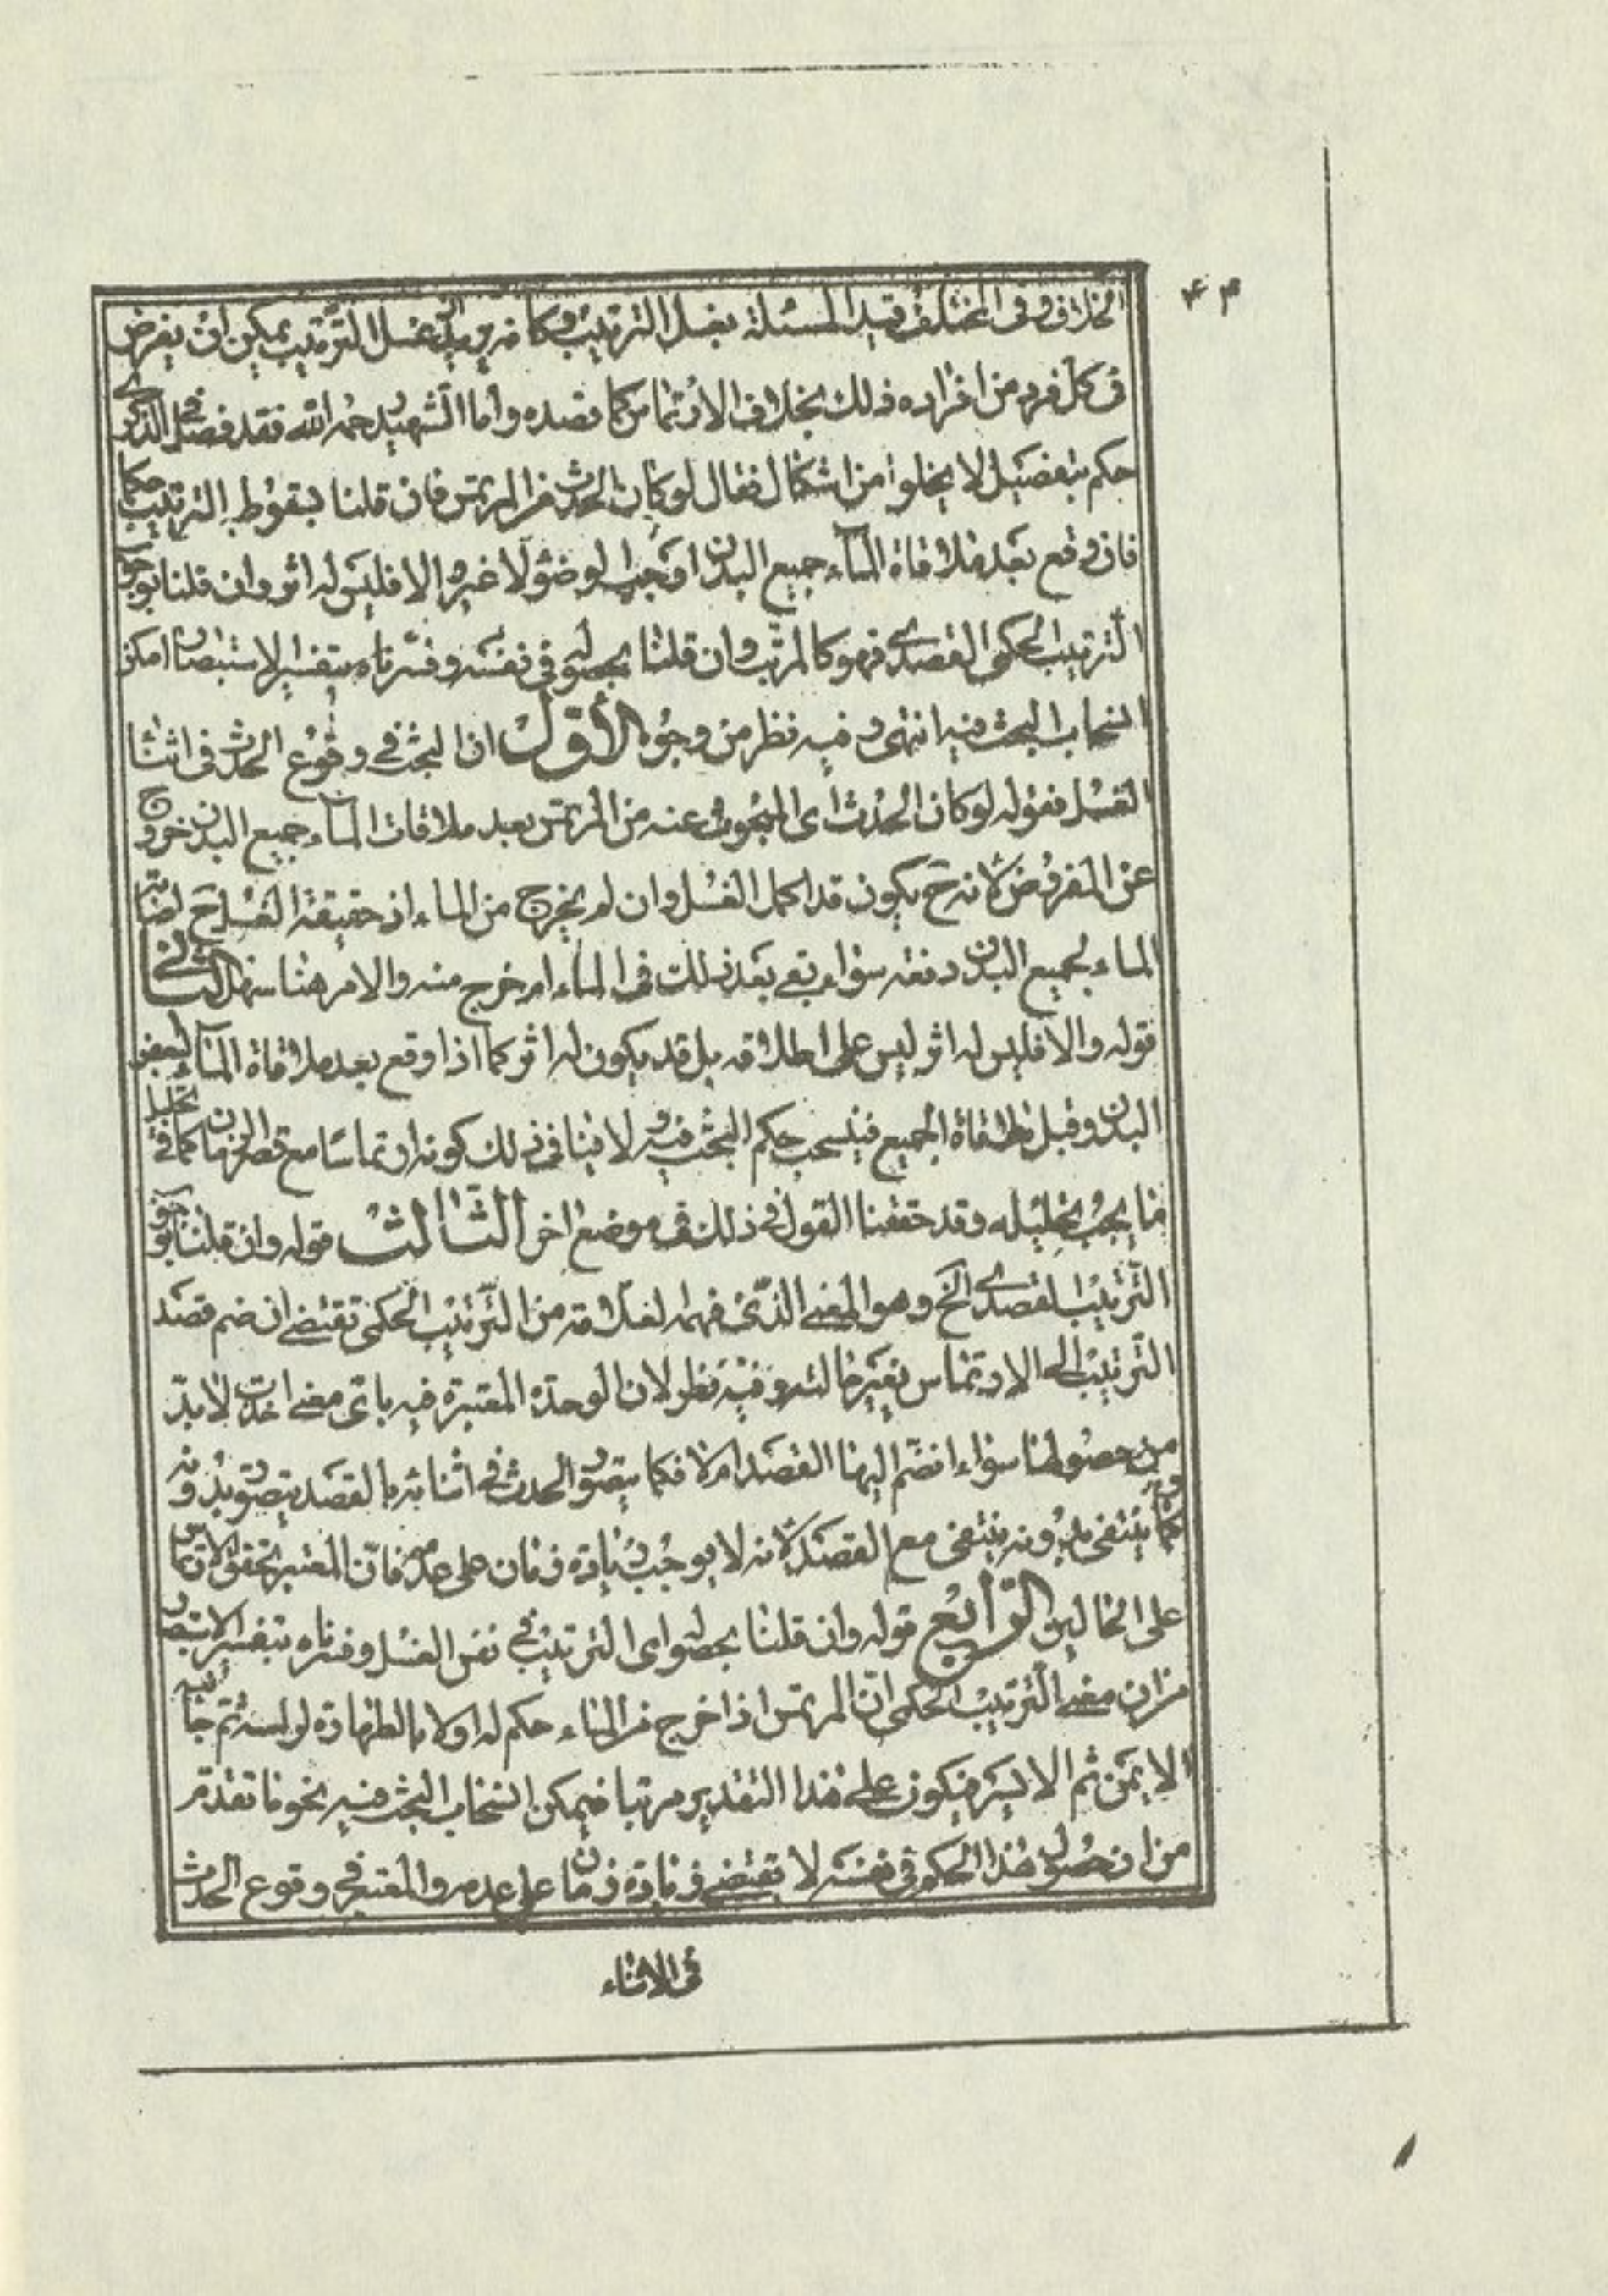 ۴۳
الخلاف وفى المختلف قيد المسئلة بغسل الترتيب وكانه يريد ان غسل الترتيب يمكن ان يفرض
فى كل فرد من افراده ذلك بخلاف الارتماس كما قصده واما الشهيد رحمه الله فقد فصل فى الذكرى
حكمه بتفصيل لا يخلوا من اشكال فقال لو كان الحدث من المرتمس فان قلنا بسقوط الترتيب حكما
فان وقع بعد ملاقاة الماء جميع البدن اوجب الوضوء لا غير والا فليس له اثر وان قلنا بوجوب
الترتيب الحكمى القصدى فهو كالمرتب وان قلنا بحصوله فى نفسه وفسرناه بتفسير الاستبصار امكن
انسحاب البحث فيه انتهى وفيه نظر من وجوه الأول ان البحث فى وقوع الحدث فى اثناء
الغسل فقوله لو كان الحدث اى المبحوث عنه من المرتمس بعد ملاقات الماء جميع البدن خروج
عن المفروض لانه ح يكون قد اكمل الغسل وان لم يخرج من الماء اذ حقيقة الغسل ح اصابة
الماء لجميع البدن دفعه سواء بقى بعد ذلك فى الماء ام خرج منه والامر هنا سهل الثانى
قوله والا فليس له اثر ليس على اطلاقه بل قد يكون له اثر كما اذا وقع بعد ملاقاة الماء لبعض
البدن وقبل ملاقاة الجميع فينسحب حكم البحث فيه ولا ينافى ذلك كونه ارتماسا مع قصر الزمان كما فى تخليل
ما يجب تخليله وقد حققنا القول فى ذلك فى موضع اخر الثالث قوله وان قلنا بوجوب
الترتيب القصدى الخ وهو المعنى الذى فهمه العلامة من الترتيب الحكمى تقتضى ان ضم قصد
الترتيب الى الارتماس بغير حالته وفيه نظر لان الوحدة المعتبرة فيه باى معنى اخذت لا بد
من حصولها سواء انضم اليها القصد ام لا فكما يتصور الحدث فى اثنائه بالقصد يتصور بدونه
وكما ينتفى بدونه ينتفى مع القصد لانه لا يوجب زيادة زمان على عدمه فان المعتبر تحقق الارتماس
على الحالين الرابع قوله وان قلنا بحصوله اى الترتيب فى نفس الغسل وفسرناه بتفسير الاستبصار
من ان معنى الترتيب الحكمى ان المرتمس اذا خرج من الماء حكم له اولا بالطهارة لراسه ثم جانبه
الايمن ثم الايسر فيكون على هذا التقدير مرتبا فيمكن انسحاب البحث فيه نحو ما تقدم
من ان حصول هذا الحكم فى نفسه لا تقتضى زيادة زمان على عدمه والمعتبر فى وقوع الحدث
فى الاثناء